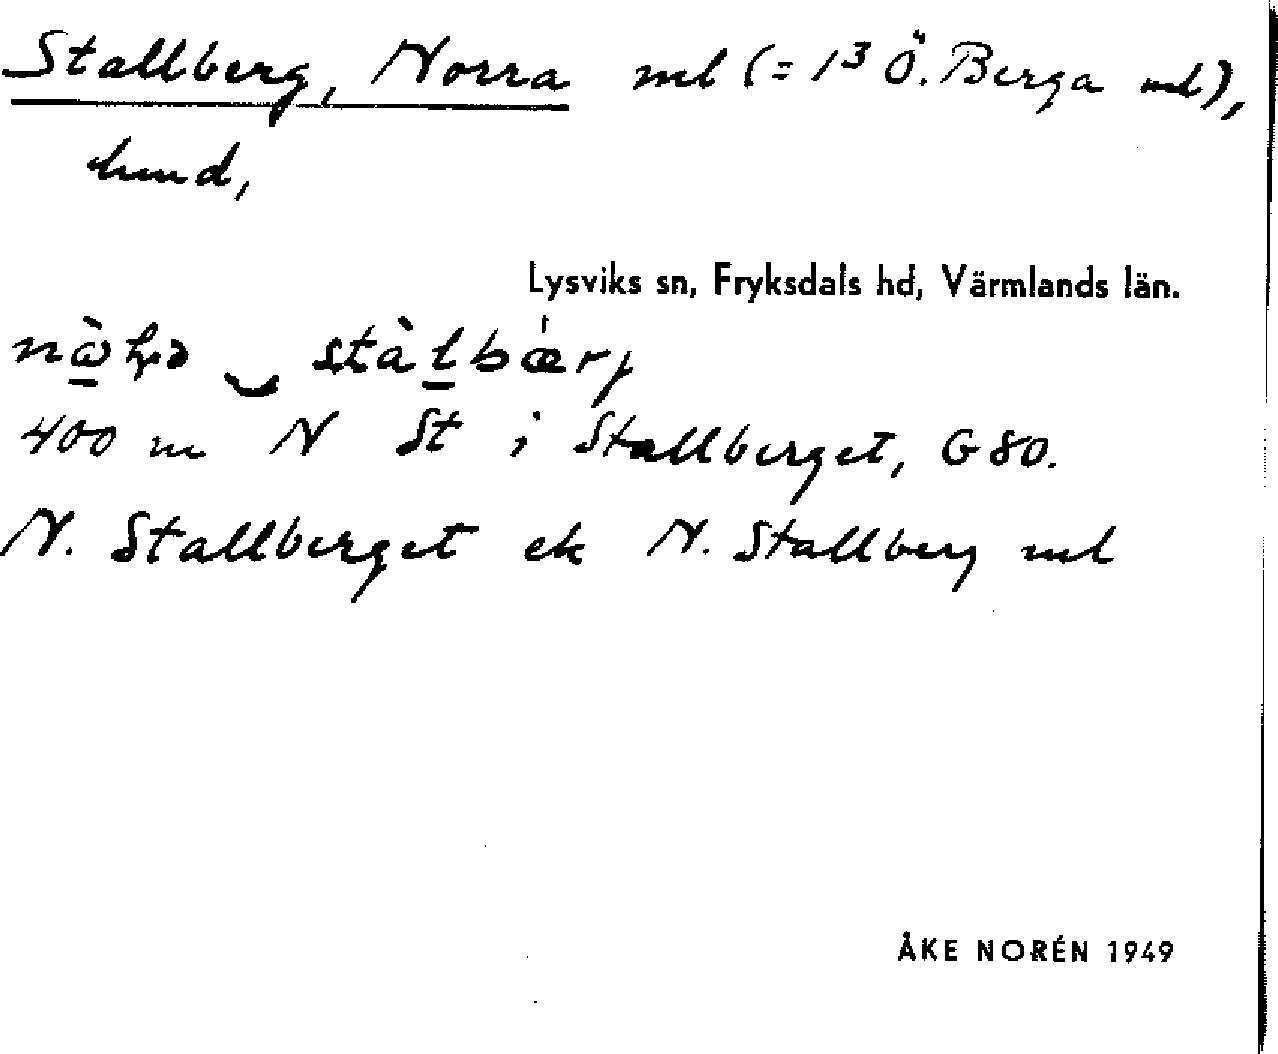 Stallberg, Norra ml (= 1³ Ö. Berga ml),
hmd,
Lysviks sn, Fryksdals hd, Värmlands län.
400 m N St i Stallberget, G 80.
N. Stallberget ek N. Stallberg ml
ÅKE NORÉN 1949